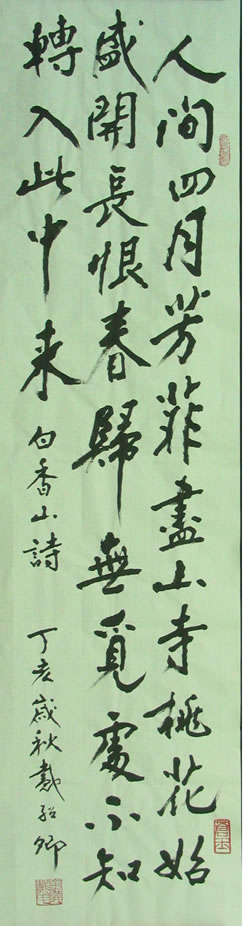 人间四月芳菲盡山寺桃花始
盛開長恨春歸無覓處不知
轉入此中来
白香山詩
丁亥歲秋戴紹卿